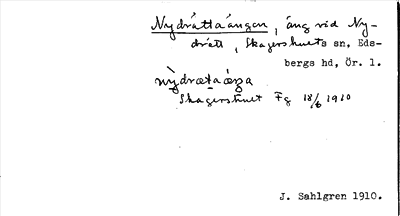 Nydråttaängen, äng vid Ny-
drått, Skagershults sn, Eds-
bergs hd, Ör. l.
nỳdrœtaœŋa
Skagershult Fg 18/6 1910
J. Sahlgren 1910.